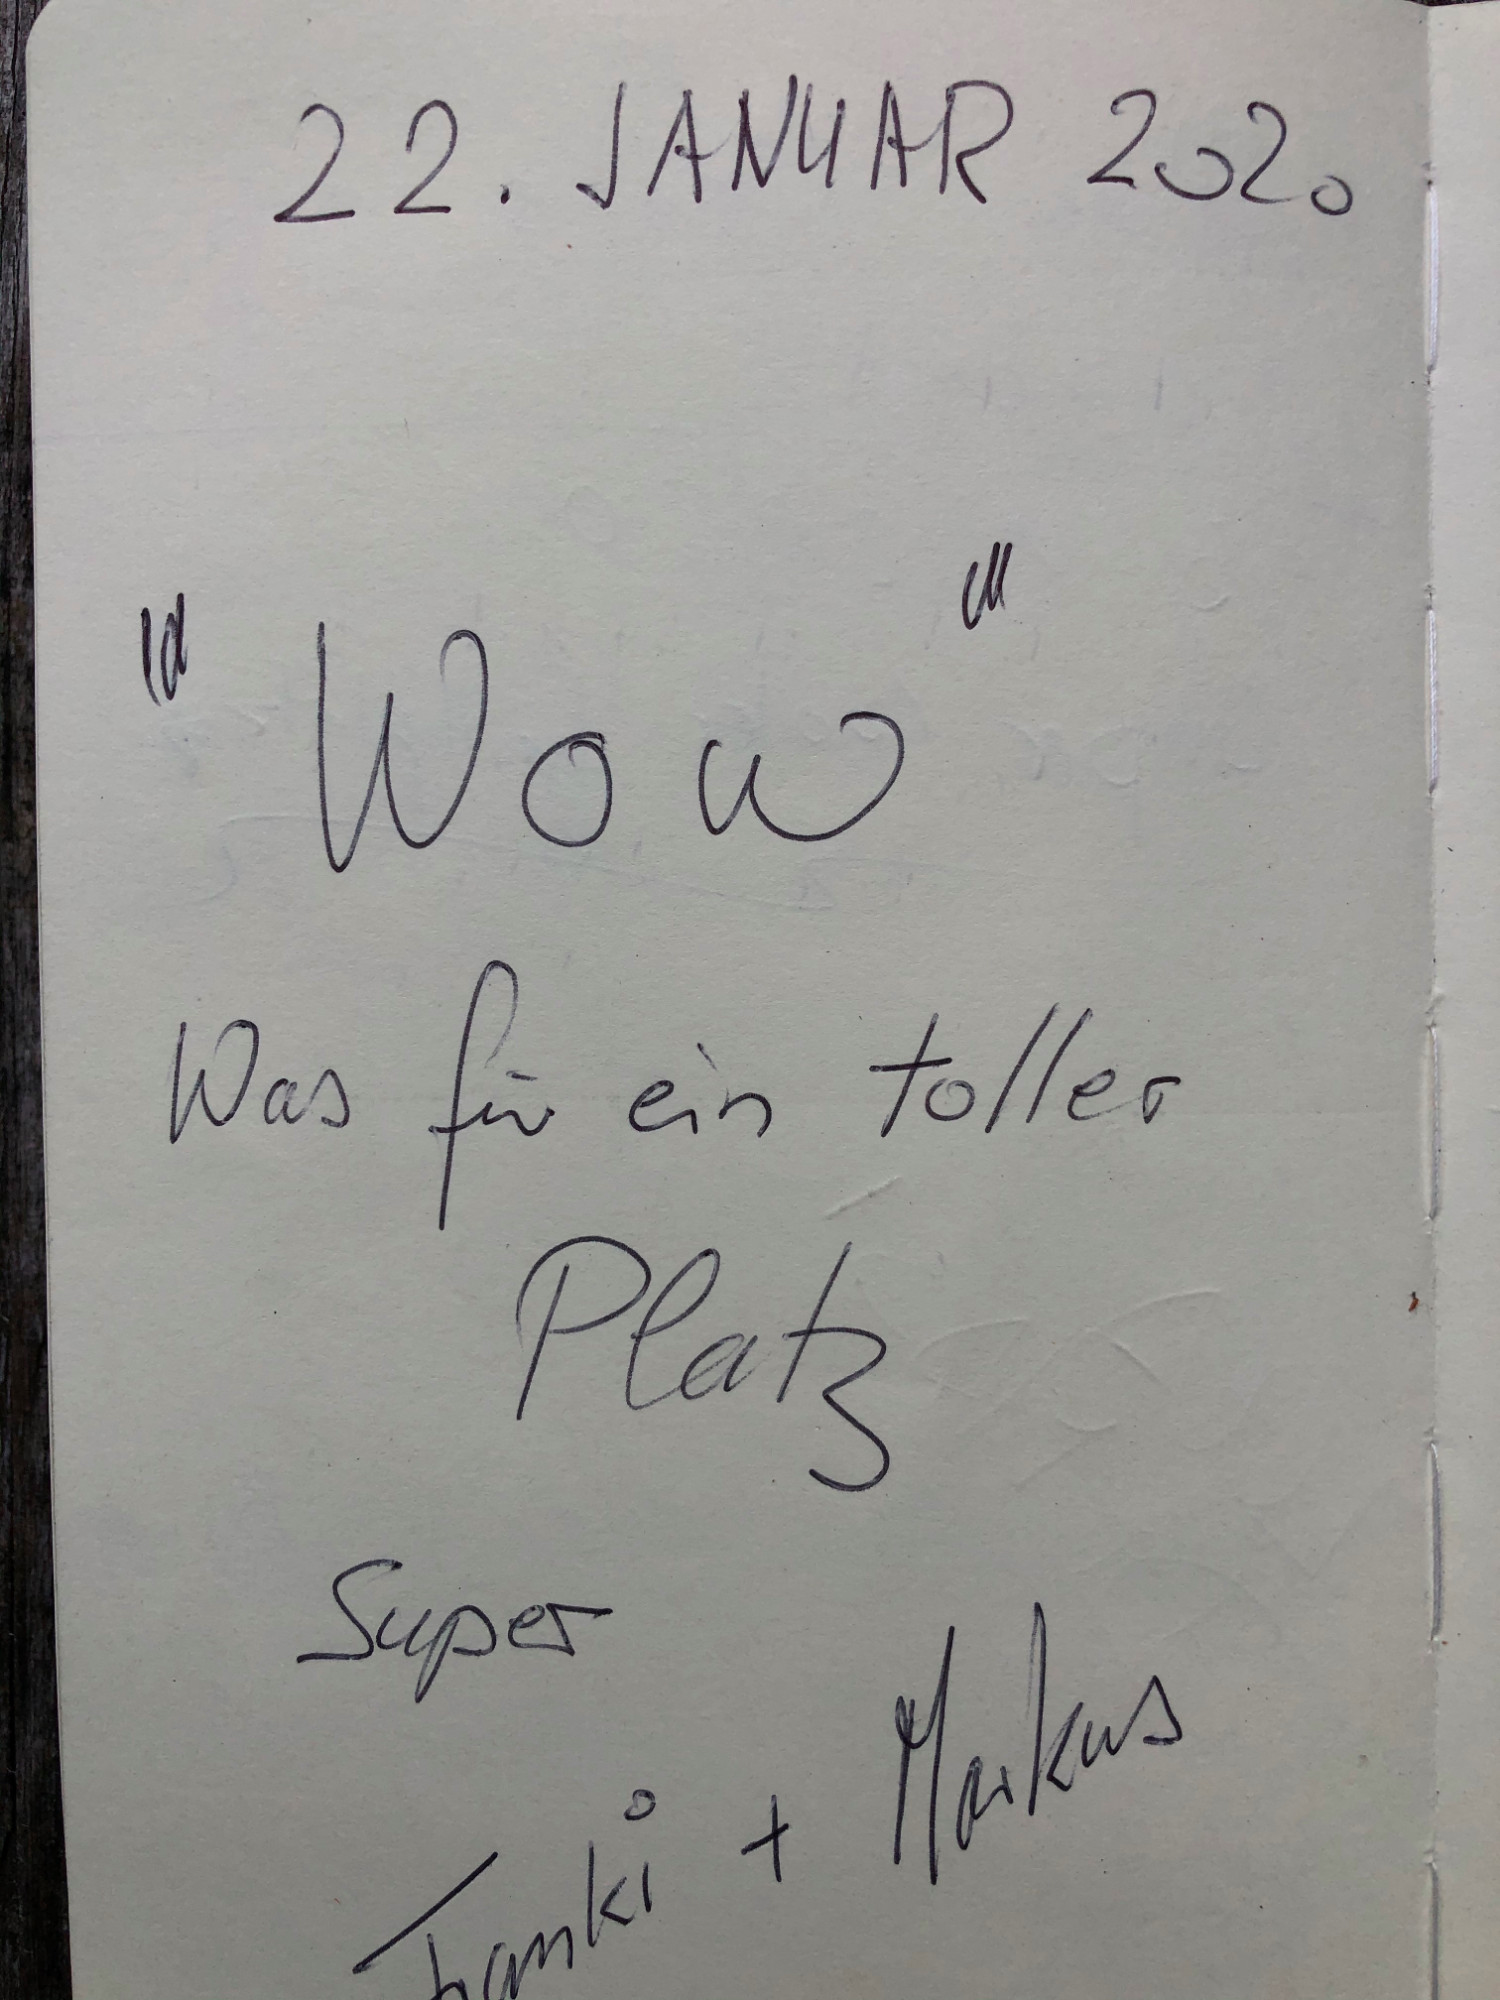 22. JANUAR 2020
"Wow"
Was für ein toller
Platz
Super
+ Markus